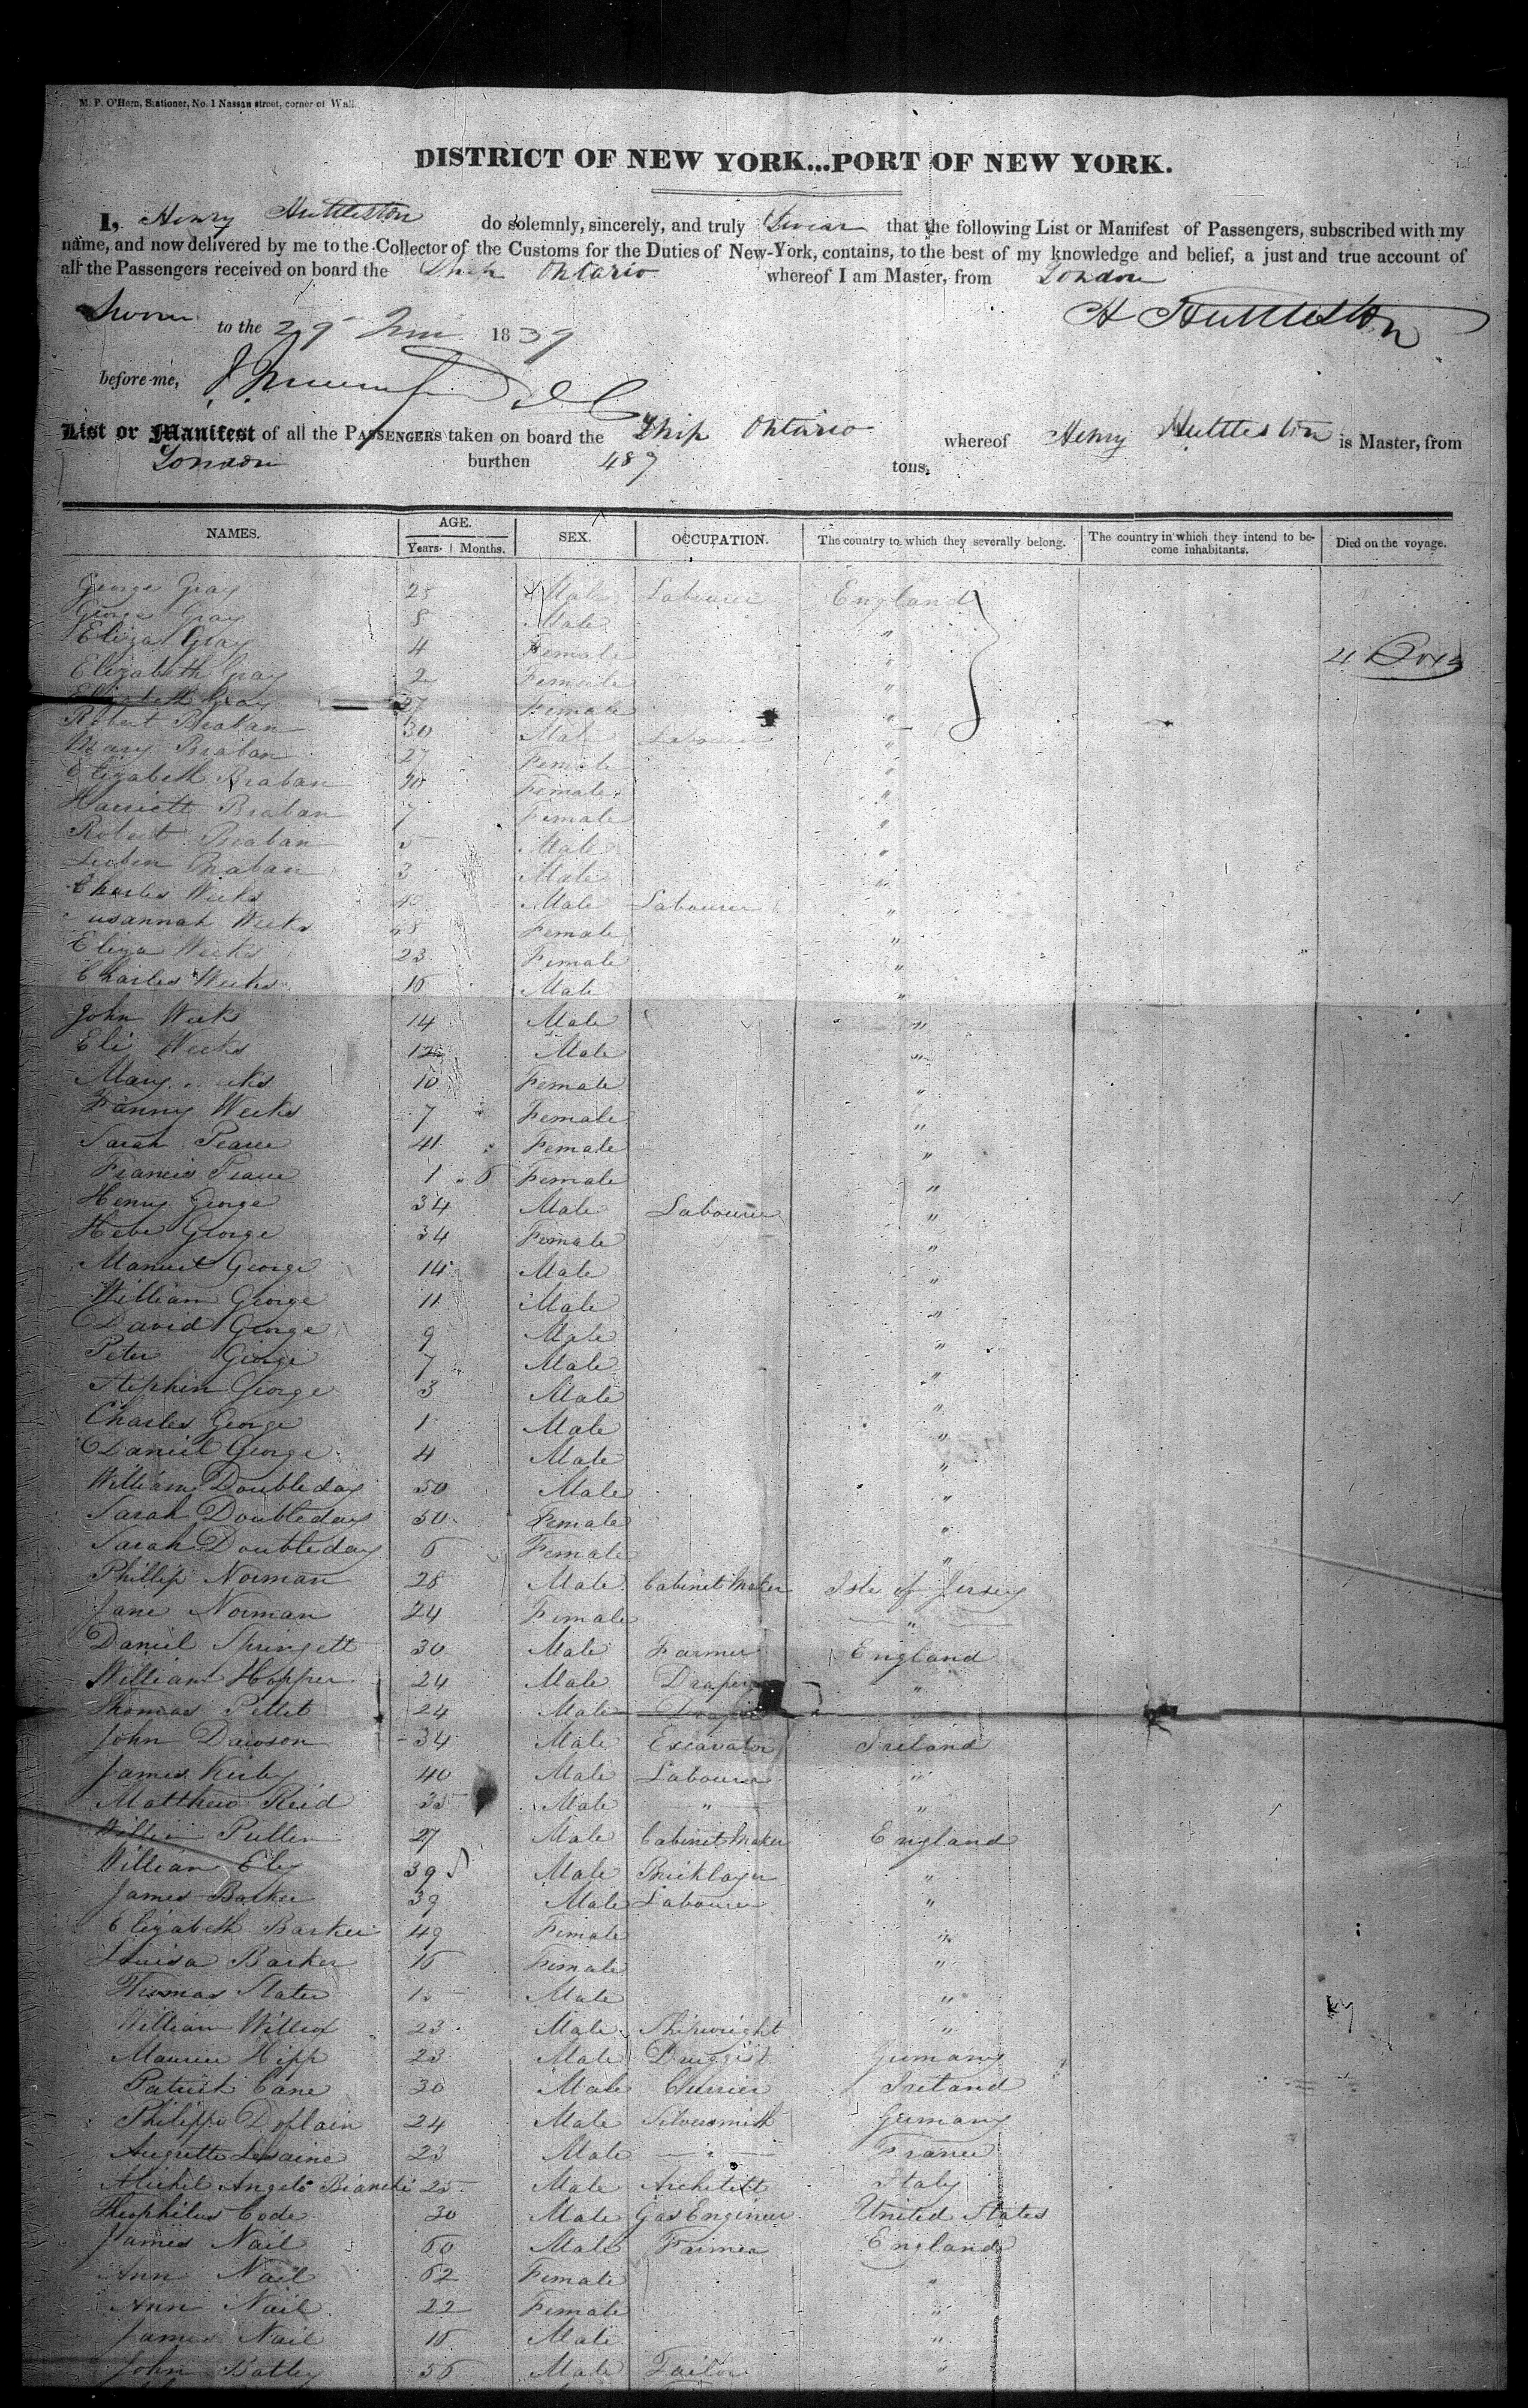 M. P. O'Hern, Stationer, No. 1 Nassau street, corner of Wall.
DISTRICT OF NEW YORK...PORT OF NEW YORK.
I, Henry Huttleston do solemnly, sincerely, and truly Swear that the following List or Manifest of Passengers, subscribed with my
name, and now delivered by me to the Collector of the Customs for the Duties of New-York, contains, to the best of my knowledge and belief, a just and true account of
all the Passengers received on board the Ship Ontario whereof I am Master, from London
Sworn to the 29 1839 H Huttleston
before me,
List or Manifest of all the PASSENGERS taken on board the Ship Ontario whereof Henry Huttleston is Master, from
London burthen 489 tons.
NAMES. AGE. Years. Months. SEX. OCCUPATION. The country to which they severally belong. The country in which they intend to become inhabitants. Died on the voyage.
George Gray 25 Male Labourer England
George Gray 8 Male "
Eliza Gray 4 Female "
4
Elizabeth Gray 2 Female "
Elizabeth Gray 27 Female "
Robert Braban 30 Male Labourer "
Mary Braban 27 Female "
Elizabeth Braban 10 Female "
Harriett Braban 7 Female "
Robert Braban 5 Male "
Braban 3 Male "
Charles Weeks 40 Male Labourer "
Susannah Weeks 48 Female "
Eliza Weeks 23 Female "
Charles Weeks 16 Male "
John Weeks 14 Male "
Eli Weeks 12 Male "
Mary Female 10 "
Fanny Weeks 7 Female "
Sarah Pearce 41 Female "
Francis Pearce 1 6 Female "
Henry George 34 Male Labourer "
Hebe George 34 Female "
Manuel George 14 Male "
William George 11 Male "
David George 9 Male "
Peter George 7 Male "
Stephen George 3 Male "
Charles George 1 Male "
Daniel George 4 Male "
William Doubleday 50 Male "
Sarah Doubleday 50 Female "
Sarah Doubleday 6 Female "
Phillip Norman 28 Male Cabinet Maker Isle of Jersey
Jane Norman 24 Female "
Daniel Springett 30 Male Farmer England
William Hopper 24 Male Draper "
Thomas Pettet 24 Male Draper
John Dawson 34 Male Excavator Ireland
James Kirby 40 Male Labourer "
Matthew Reid 35 Male " "
William Pullen 27 Male Cabinet Maker England
William Eley 39 Male Bricklayer "
James Barker 39 Male Labourer "
Elizabeth Barker 49 Female "
Louisa Barker 16 Female "
Thomas Slater 15 Male "
William Willcox 23 Male Shipwright "
Maurice Hipp 23 Male Druggist Germany
Patrick Cane 30 Male Currier Ireland
Philippe 24 Male Silversmith Germany
23 Male " France
Michel Angelo Bianchi 25 Male Architect Italy
Theophilus Code 30 Male Gas Engineer United States
James Nail 60 Male Farmer England
Ann Nail 62 Female "
Ann Nail 22 Female "
James Nail 16 Male "
John Batley 56 Male Tailor "